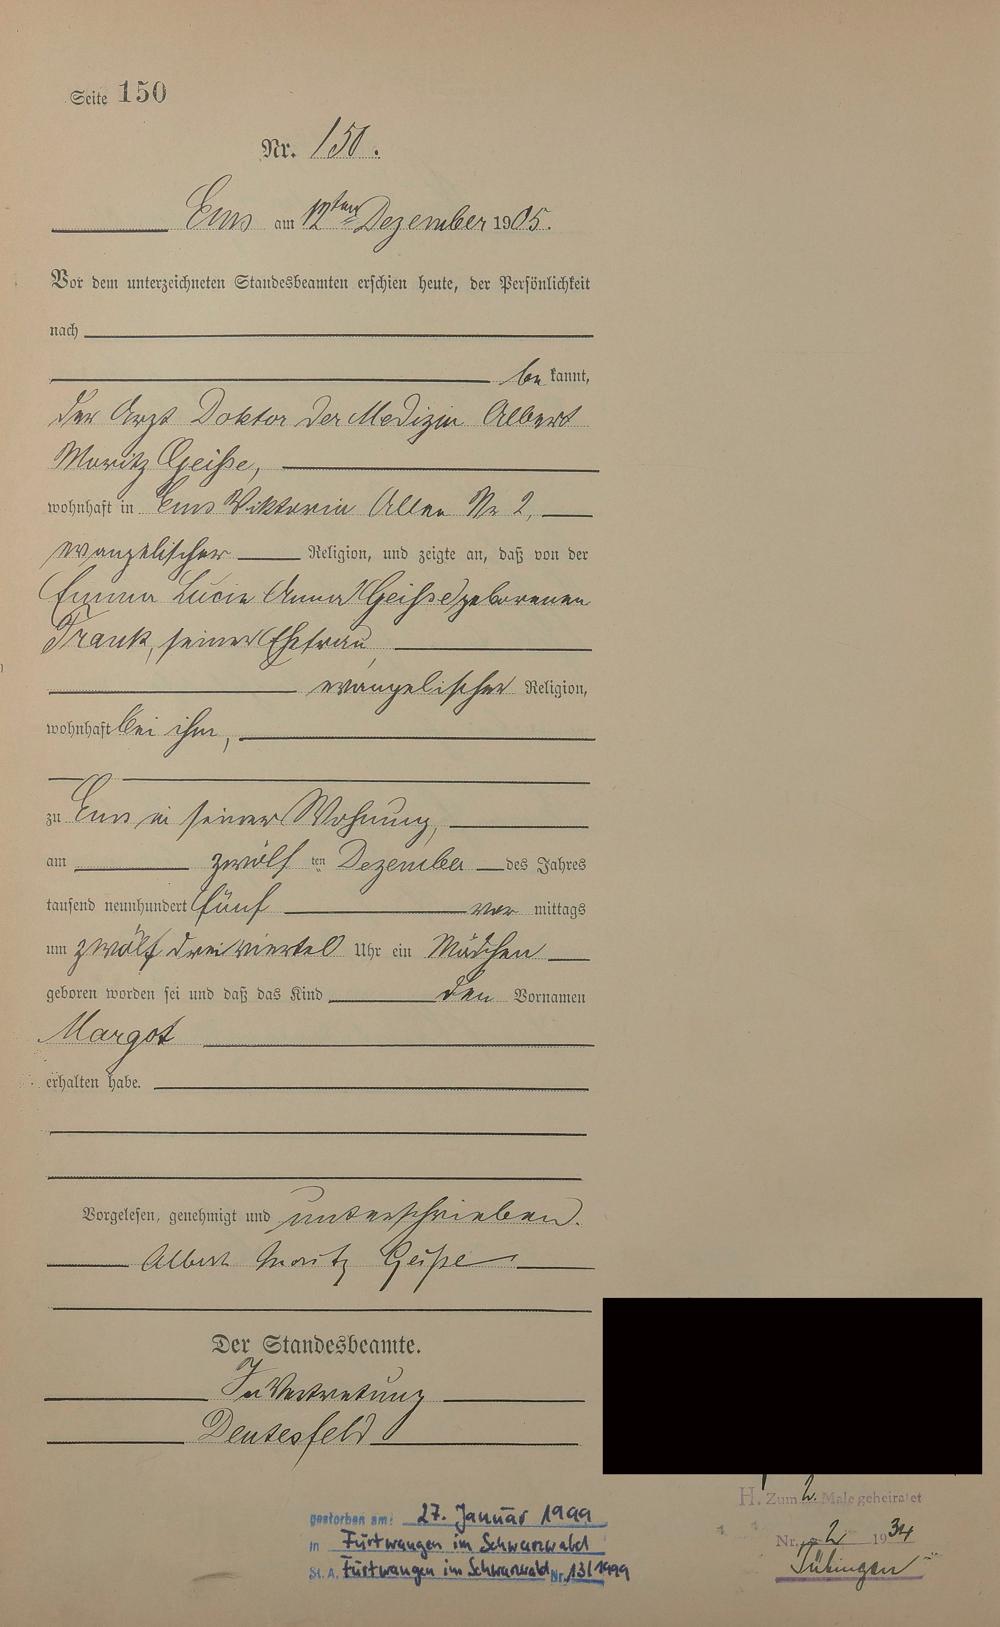 Seite 150
Nr. 150.
Ems am 12ten Dezember 1905.
Vor dem unterzeichneten Standesbeamten erschien heute, der Persönlichkeit
nach
be kannt,
der Arzt Doktor der Medizin Albert
Moritz Geiße,
wohnhaft in Ems Viktoria Allee Nr 2,
evangelischer Religion, und zeigte an, daß von der
Emma Lucie Anna Geiße geborenen
Frank, seiner Ehefrau,
evangelischer Religion,
wohnhaft bei ihm,
zu Ems in seiner Wohnung,
am zwölf ten Dezember des Jahres
tausend neunhundert fünf vor mittags
um zwölf dreiviertel Uhr ein Mädchen
geboren worden sei und daß das Kind den Vornamen
Margot
erhalten habe.
Vorgelesen, genehmigt und unterschrieben.
Albert Moritz Geiße
Der Standesbeamte.
In Vertretung
Deutesfeld
gestorben am: 27. Januar 1999
in Furtwangen im Schwarzwald
St. A. Furtwangen im Schwarzwald Nr. 13/1999
H. Zum 2. Male geheiratet
Nr. 2 1934
Tübingen